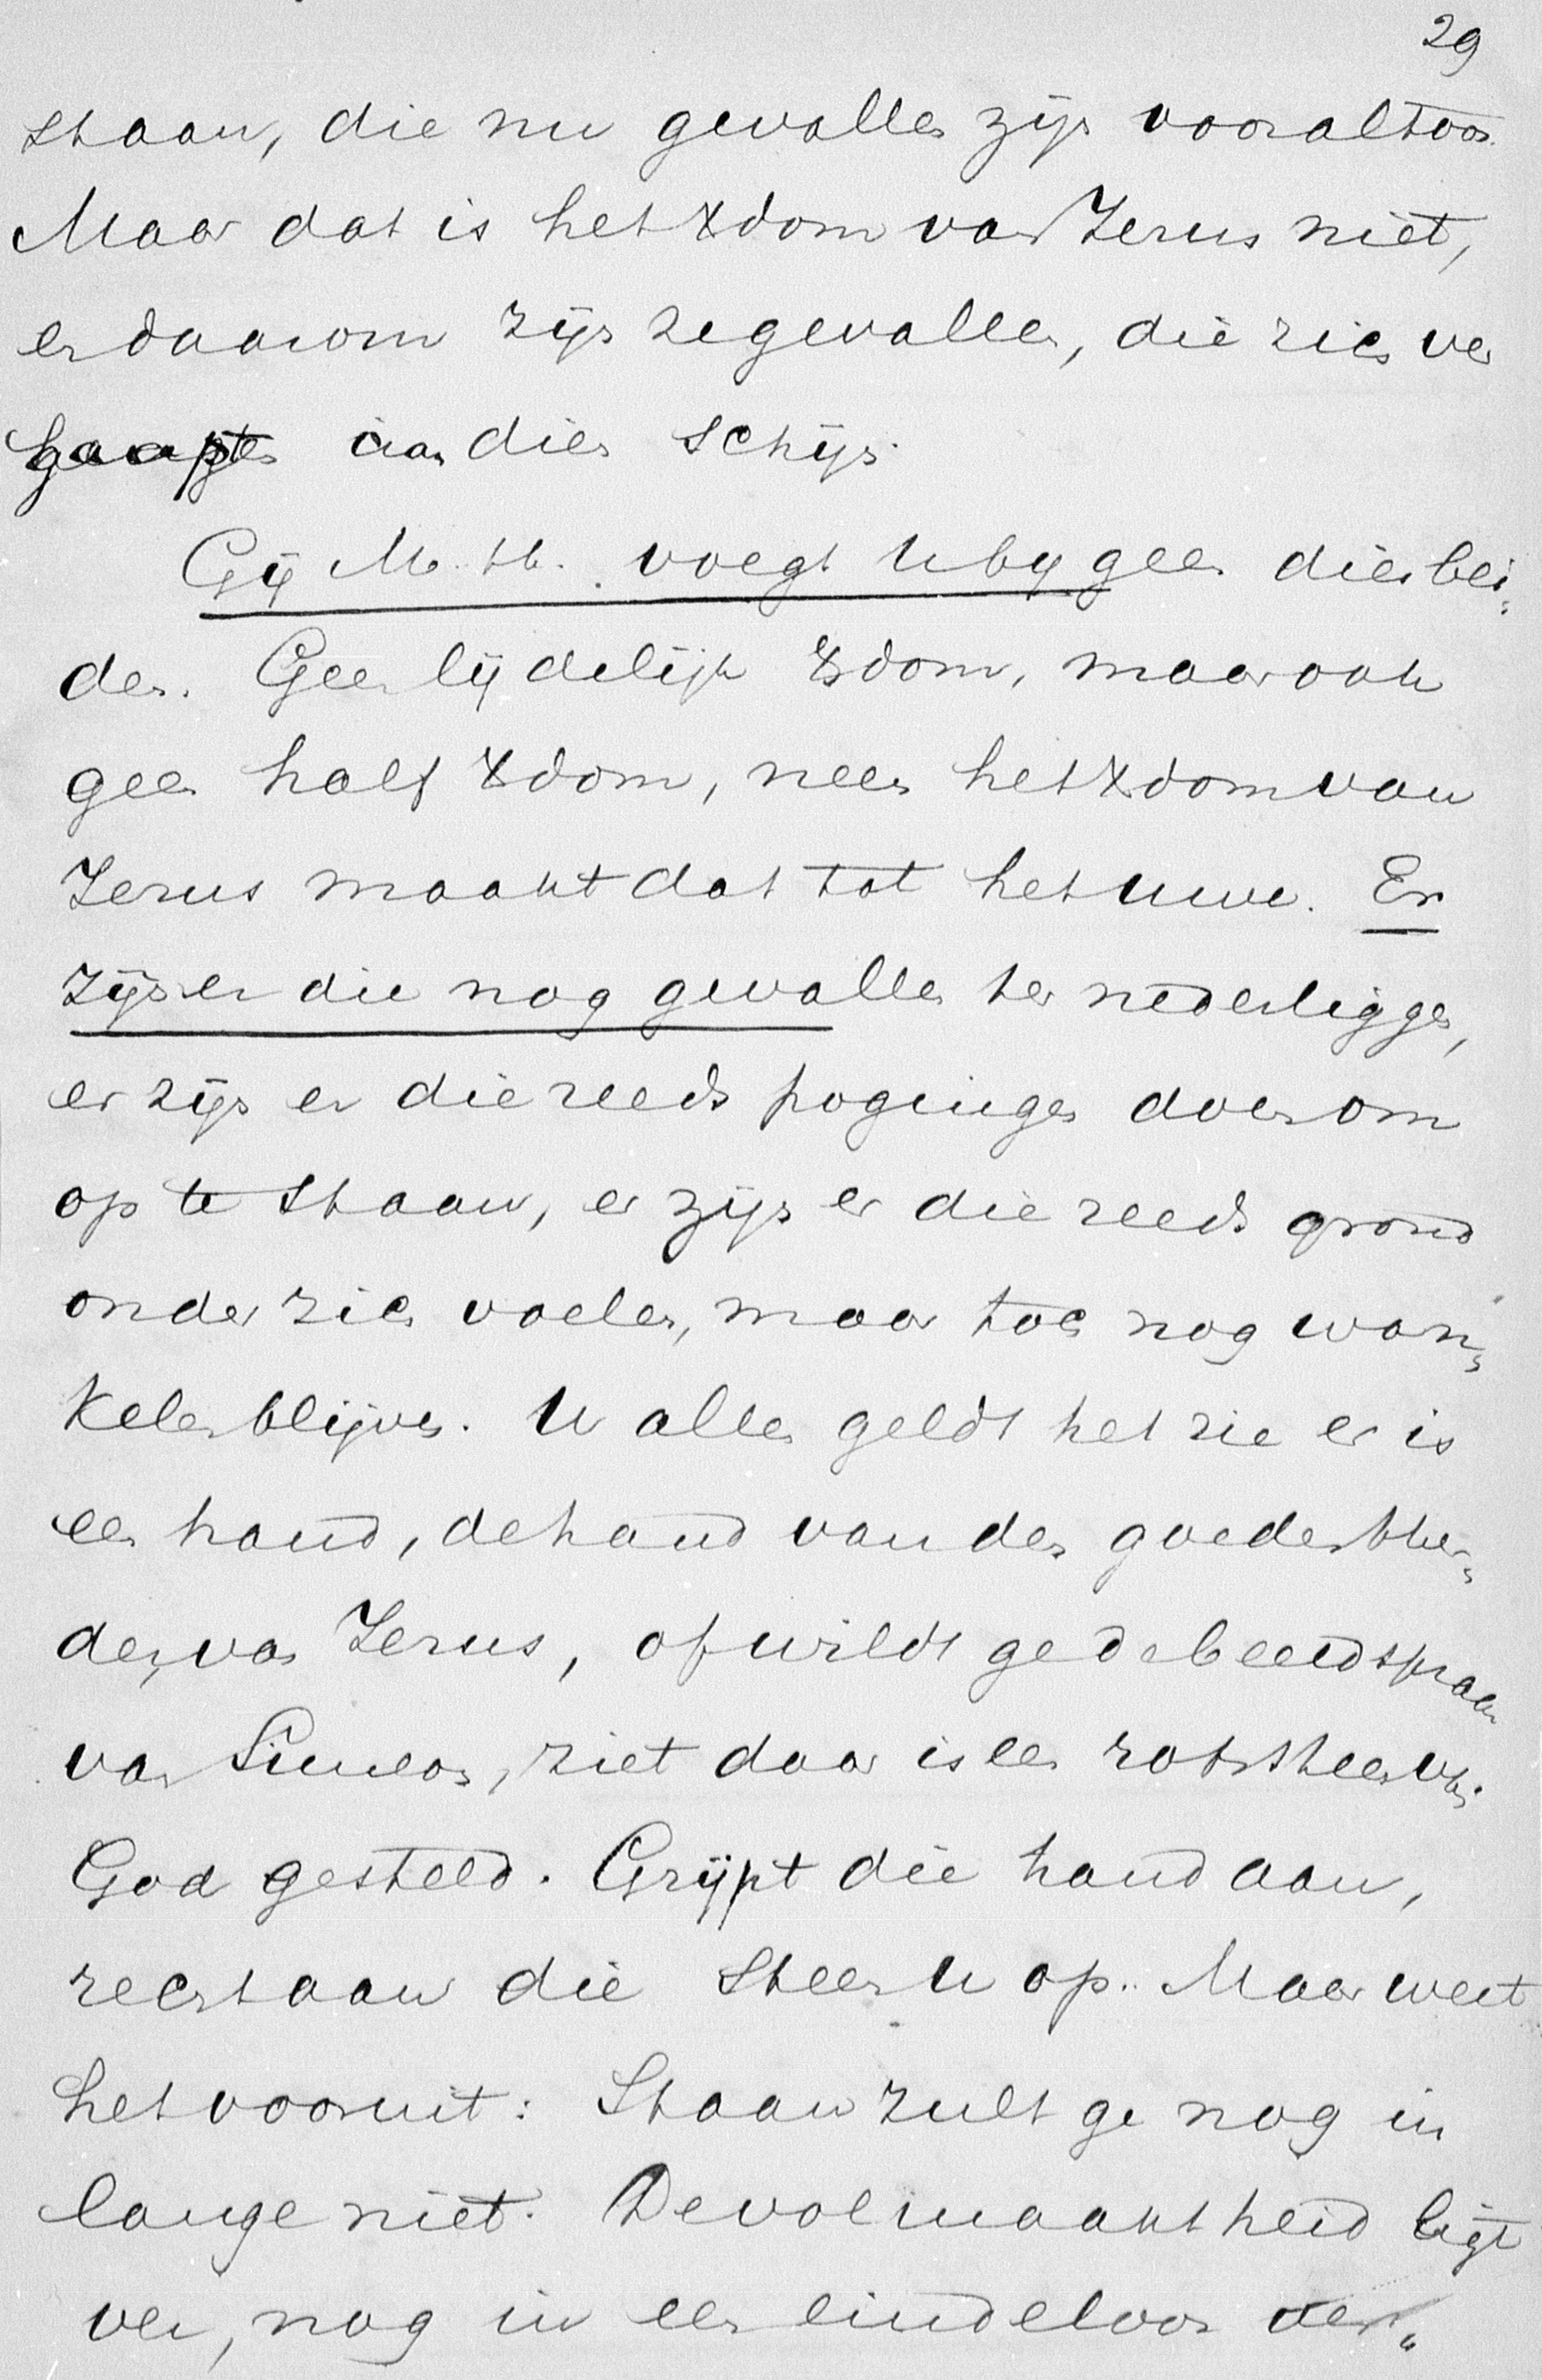 29
staan, die nu gevallen zijn voor altoos.
Maar dat is het Xdom van Jezus niet,
en daarom zijn ze gevallen, die zich ver
gaapten aan dien schijn.
Gij M. H. voegt U bij geen dier bei-
den. Geen lijdelijk Xdom, maar ook
geen half Xdom, neen het Xdom van
Jezus maakt dat tot het uwe. Er
zijn er die nog gevallen ter nederliggen,
er zijn er die reeds pogingen doen om
op te staan, er zijn er die reeds grond
onder zich voelen, maar toch nog wan-
kelen blijven. U allen geldt het zie er is
een hand, de hand van den goeden Her-
der, van Jezus, of wildt ge de beeldspraak
van Simeon, ziet daar is een rotssteen v.
God gesteld. Grijpt die hand aan,
recht aan die steen U op. Maar weet
het vooruit: Staan zult ge nog in
lange niet. De volmaaktheid ligt
ver, nog in een eindeloos ver-